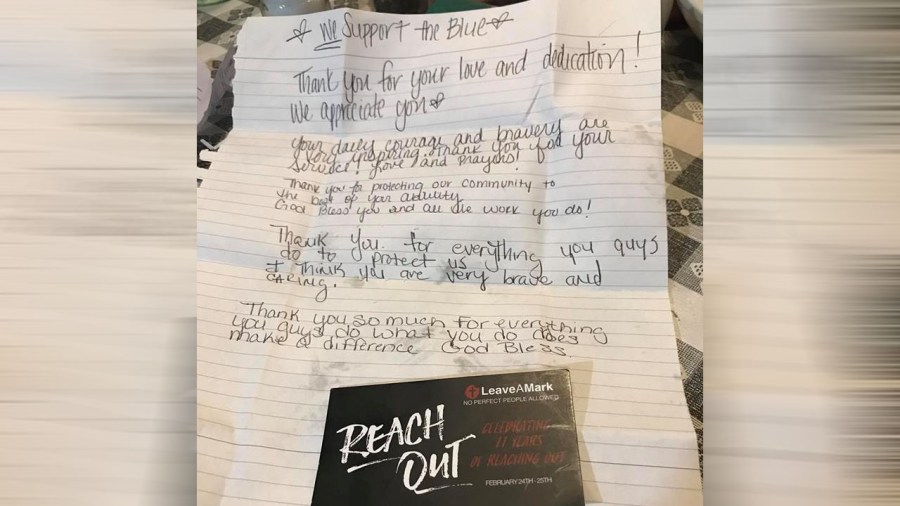 We Support the Blue
Thank you for your love and dedication!
We appriciate you
Your daily courage and bravery are
very inspiring. Thank you for your
service! Love and Prayers!
Thank you for protecting our community to
the best of your ability.
God Bless you and all the work you do!
Thank you for everything you guys
do to protect us
I think you are very brave and
caring.
Thank you so much for everything
you guys do what you do does
make a difference God Bless
LeaveAMark
NO PERFECT PEOPLE ALLOWED
REACH
OUT
CELEBRATING
11 YEARS
OF REACHING OUT
FEBRUARY 24TH - 25TH